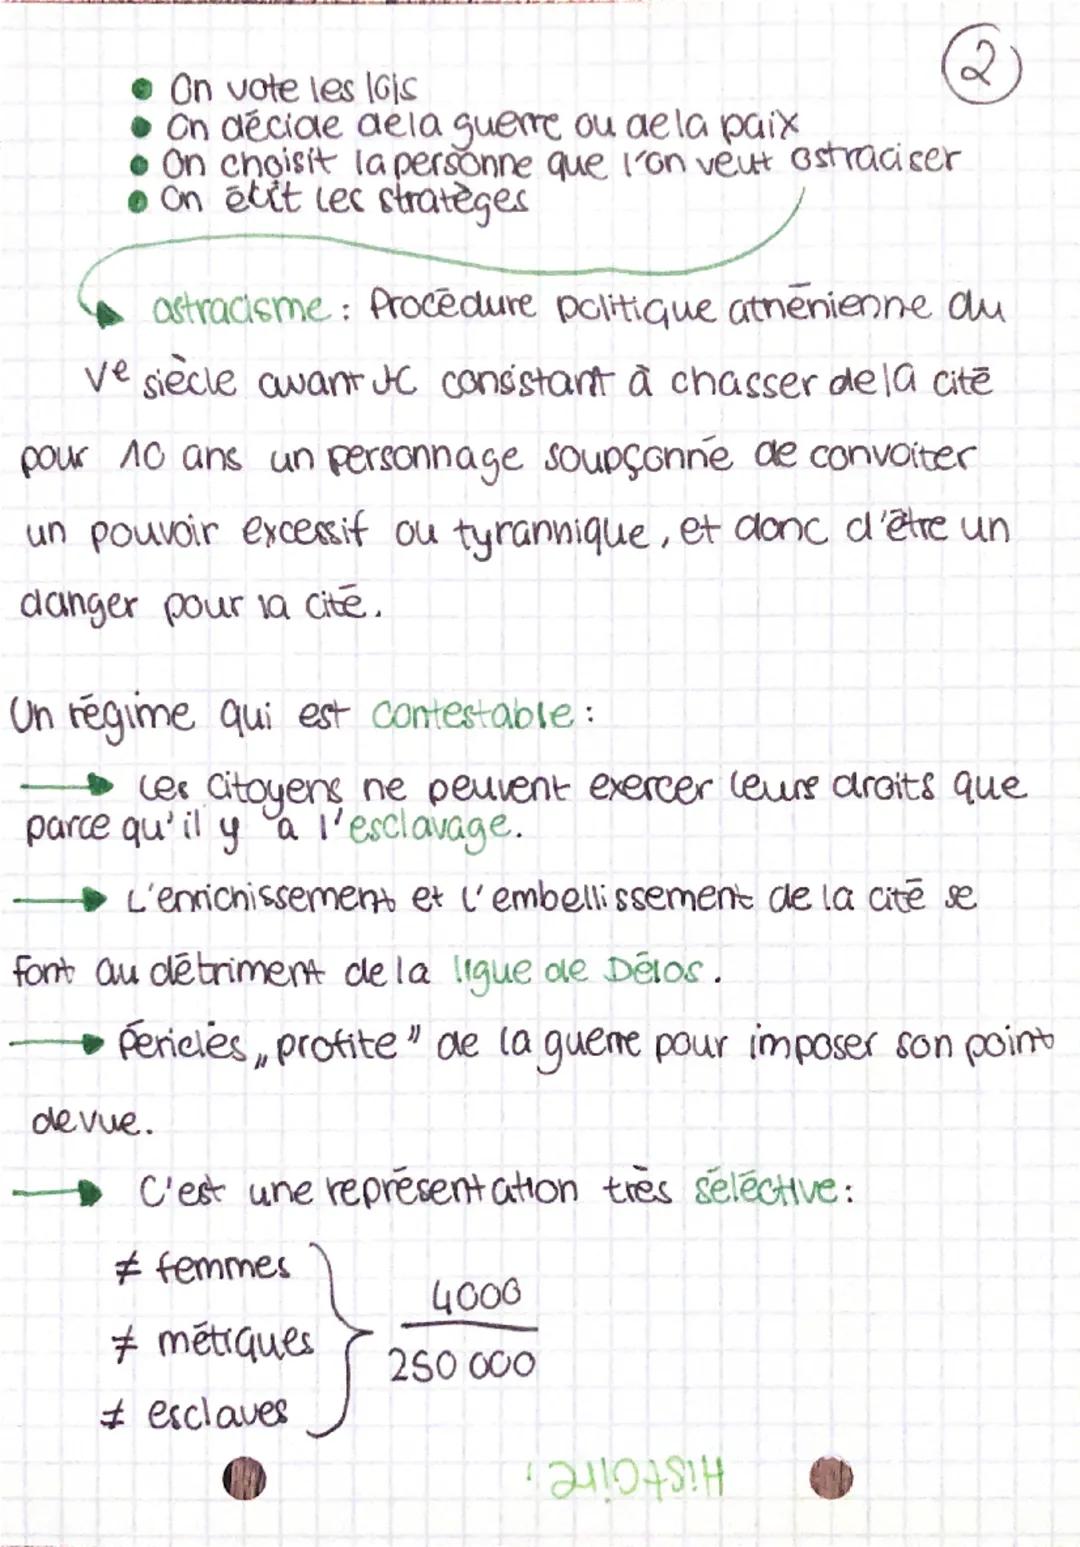 2
On vote les lois
On décide de la guerre ou de la paix
On choisit la personne que l'on veut ostraciser
On élit les stratèges
ostracisme : Procédure politique athénienne du
Ve siècle avant JC consistant à chasser de la cité
pour 10 ans un personnage soupçonné de convoiter
un pouvoir excessif ou tyrannique, et donc d'être un
danger pour la cité.
Un régime qui est contestable :
Les citoyens ne peuvent exercer leurs droits que
parce qu'il y a l'esclavage.
L'enrichissement et l'embellissement de la cité se
font au détriment de la ligue de Délos.
Périclès „profite" de la guerre pour imposer son point
de vue.
C'est une représentation très séléctive :
≠ femmes
≠ métiques
≠ esclaves
4000
250 000
Histoire :